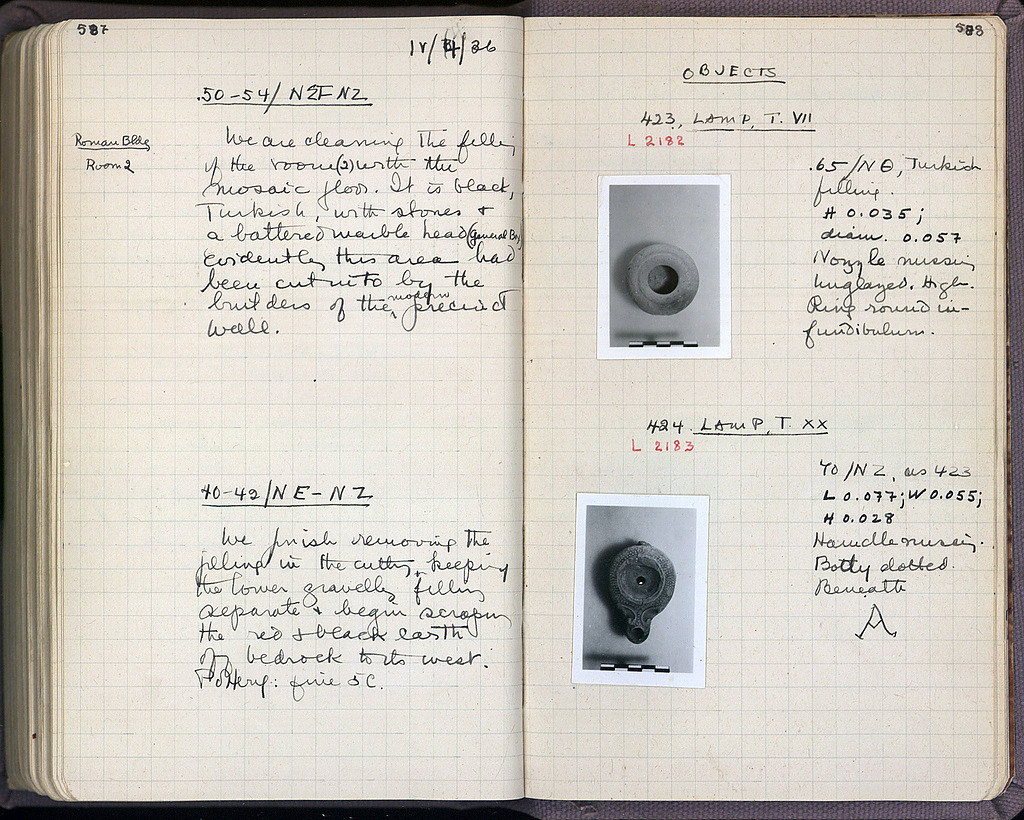 587
/36
Roman Bldg
Room 2
We are cleaning the filling
of the room (2) with the
mosaic floor. It is black,
Turkish, with stones +
a battered marble head
Evidently this area had
been cut into by the
builders of the modern precinct
wall.
40-42/NE-NZ
We finish removing the
filling in the cutting, keeping
the lower gravelly filling
separate + begin scraping
the red + black earth
bedrock to its west.
Pottery: fine 5 C.
588
OBJECTS
423, LAMP, T. VII
L 2182
.65/NΘ, Turkish
filling.
H 0.035;
diam. 0.057
Nozzle missing
Unglazed. High.
Ring round in-
fundibulum.
424. LAMP, T. XX
L 2183
70/NZ, as 423
L 0.077; W 0.055;
H 0.028
Handle missing.
Body dotted.
Beneath
A